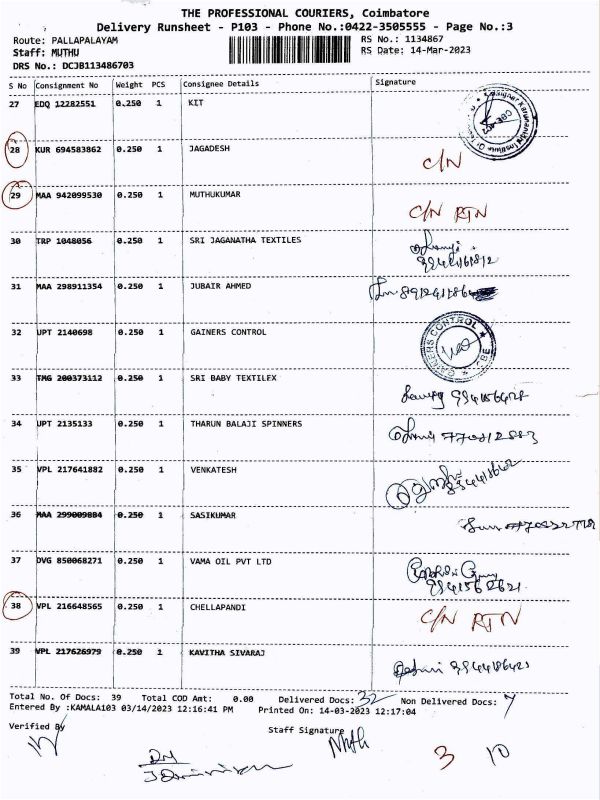 THE PROFESSIONAL COURIERS, Coimbatore
Delivery Runsheet - P103 - Phone No.:0422-3505555 - Page No.:3
Route: PALLAPALAYAM
RS No.: 1134867
Staff: MUTHU
RS Date: 14-Mar-2023
DRS No.: DCJB113486703
S No Consignment No Weight PCS Consignee Details Signature
27 EDQ 12282551 0.250 1 KIT
28 KUR 694583862 0.250 1 JAGADESH C/N
29 MAA 942099530 0.250 1 MUTHUKUMAR C/N RTN
30 TRP 1048056 0.250 1 SRI JAGANATHA TEXTILES
31 MAA 298911354 0.250 1 JUBAIR AHMED
32 UPT 2140698 0.250 1 GAINERS CONTROL GAINERS CONTROL CBE
33 TMG 200373112 0.250 1 SRI BABY TEXTILEX
34 UPT 2135133 0.250 1 THARUN BALAJI SPINNERS
35 VPL 217641882 0.250 1 VENKATESH
36 MAA 299009884 0.250 1 SASIKUMAR
37 DVG 850068271 0.250 1 VAMA OIL PVT LTD
38 VPL 216648565 0.250 1 CHELLAPANDI C/N RTN
39 VPL 217626979 0.250 1 KAVITHA SIVARAJ
Total No. Of Docs: 39 Total COD Amt: 0.00 Delivered Docs: 32 Non Delivered Docs: 7
Entered By :KAMALA103 03/14/2023 12:16:41 PM Printed On: 14-03-2023 12:17:04
Verified By
Staff Signature
3 10